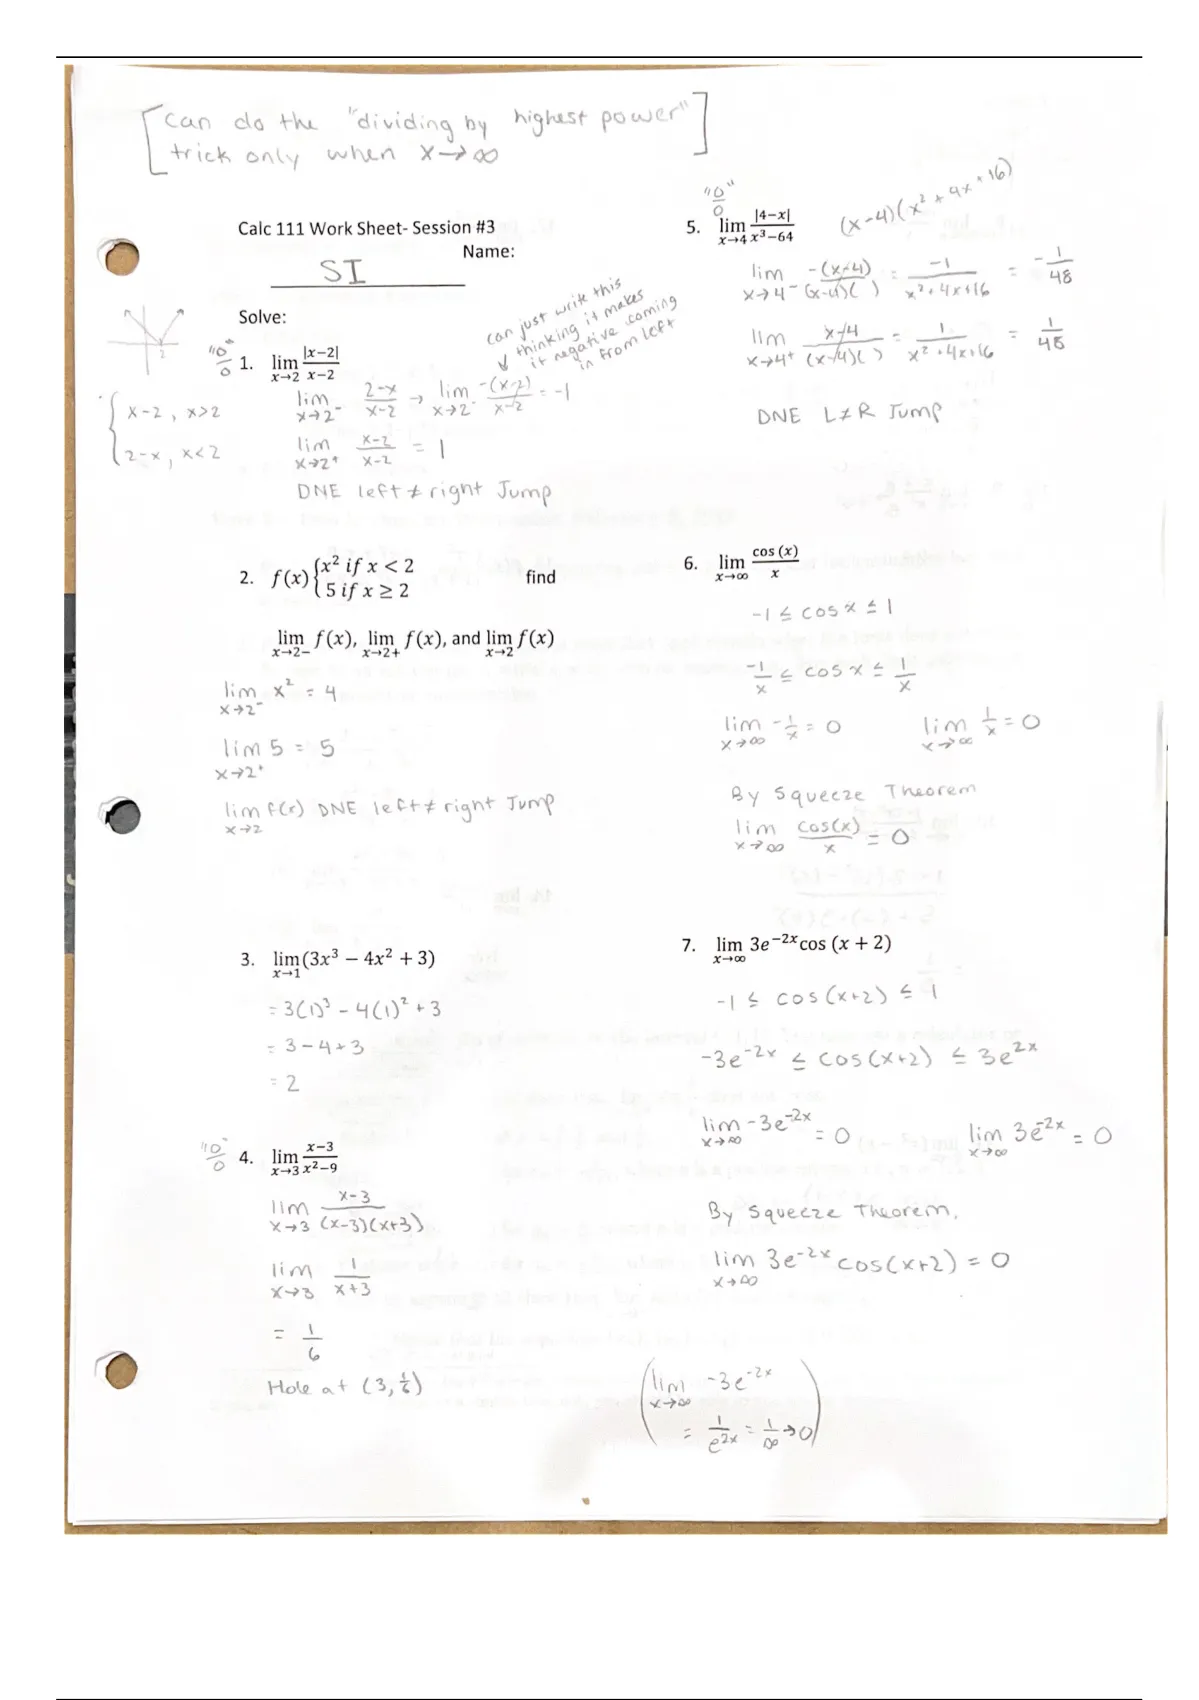 [can do the "dividing by highest power"
trick only when x→∞]
Calc 111 Work Sheet- Session #3
Name:
SI
Solve:
2
"0"/0
1. lim x→2 |x−2|/(x−2)
can just write this
↓ thinking it makes
it negative coming
in from left
{ x-2, x>2
2-x, x<2
lim x→2⁻ (2-x)/(x-2) → lim x→2⁻ -(x-2)/(x-2) = -1
lim x→2⁺ (x-2)/(x-2) = 1
DNE left ≠ right Jump
2. f(x) { x² if x < 2
5 if x ≥ 2
find
lim x→2− f(x), lim x→2+ f(x), and lim x→2 f(x)
lim x→2⁻ x² = 4
lim x→2⁺ 5 = 5
lim x→2 f(x) DNE left ≠ right Jump
3. lim x→1 (3x³ − 4x² + 3)
= 3(1)³ - 4(1)² + 3
= 3 - 4 + 3
= 2
"0"/0
4. lim x→3 (x−3)/(x²−9)
lim x→3 (x-3)/((x-3)(x+3))
lim x→3 1/(x+3)
= 1/6
Hole at (3, 1/6)
"0"/0
5. lim x→4 |4−x|/(x³−64)
(x-4)(x² + 4x + 16)
lim x→4⁻ -(x-4)/((x-4)( )) = -1/(x²+4x+16) = -1/48
lim x→4⁺ (x-4)/((x-4)( )) = 1/(x²+4x+16) = 1/48
DNE L≠R Jump
6. lim x→∞ cos (x)/x
-1 ≤ cos x ≤ 1
-1/x ≤ cos x ≤ 1/x
lim x→∞ -1/x = 0 lim x→∞ 1/x = 0
By Squeeze Theorem
lim x→∞ cos(x)/x = 0
7. lim x→∞ 3e⁻²ˣcos (x + 2)
-1 ≤ cos(x+2) ≤ 1
-3e⁻²ˣ ≤ cos(x+2) ≤ 3e²ˣ
lim x→∞ -3e⁻²ˣ = 0 lim x→∞ 3e⁻²ˣ = 0
By Squeeze Theorem,
lim x→∞ 3e⁻²ˣ cos(x+2) = 0
(lim x→∞ -3e⁻²ˣ
= 1/e²ˣ = 1/∞ → 0)